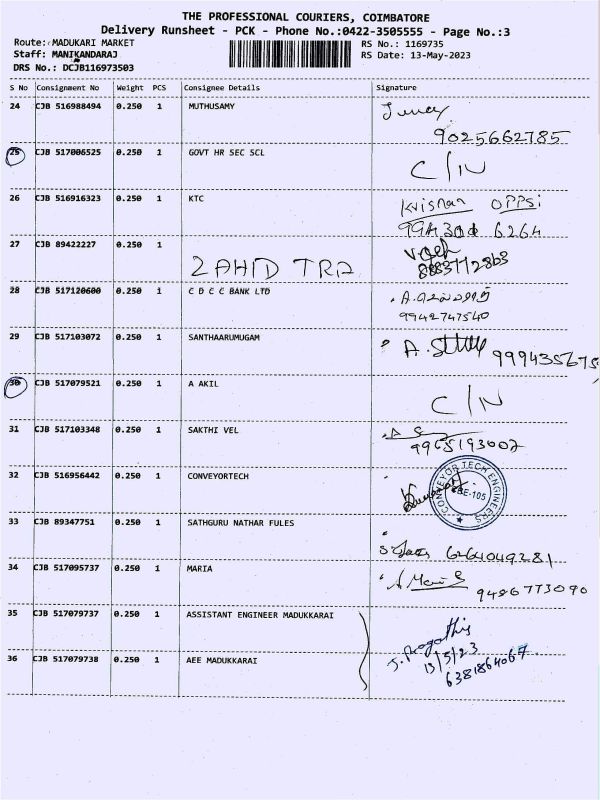 THE PROFESSIONAL COURIERS, COIMBATORE
Delivery Runsheet - PCK - Phone No.:0422-3505555 - Page No.:3
Route: MADUKARI MARKET
RS No.: 1169735
Staff: MANIKANDARAJ
RS Date: 13-May-2023
DRS No.: DCJB116973503
S No Consignment No Weight PCS Consignee Details Signature
24 CJB 516988494 0.250 1 MUTHUSAMY
9025662785
25 CJB 517006525 0.250 1 GOVT HR SEC SCL
C/N
26 CJB 516916323 0.250 1 KTC
Krisnan OPPSi
994300 6264
27 CJB 89422227 0.250 1
ZAHID TRA
28 CJB 517120600 0.250 1 C D C C BANK LTD
9942747540
29 CJB 517103072 0.250 1 SANTHAARUMUGAM
999435675
30 CJB 517079521 0.250 1 A AKIL
C/N
31 CJB 517103348 0.250 1 SAKTHI VEL
9965193007
32 CJB 516956442 0.250 1 CONVEYORTECH
CONVEYOR TECH ENGINEERS
CBE-105
33 CJB 89347751 0.250 1 SATHGURU NATHAR FULES
6264049281
34 CJB 517095737 0.250 1 MARIA
9486773090
35 CJB 517079737 0.250 1 ASSISTANT ENGINEER MADUKKARAI
J. Pragathis
13/5/23
6381864067
36 CJB 517079738 0.250 1 AEE MADUKKARAI